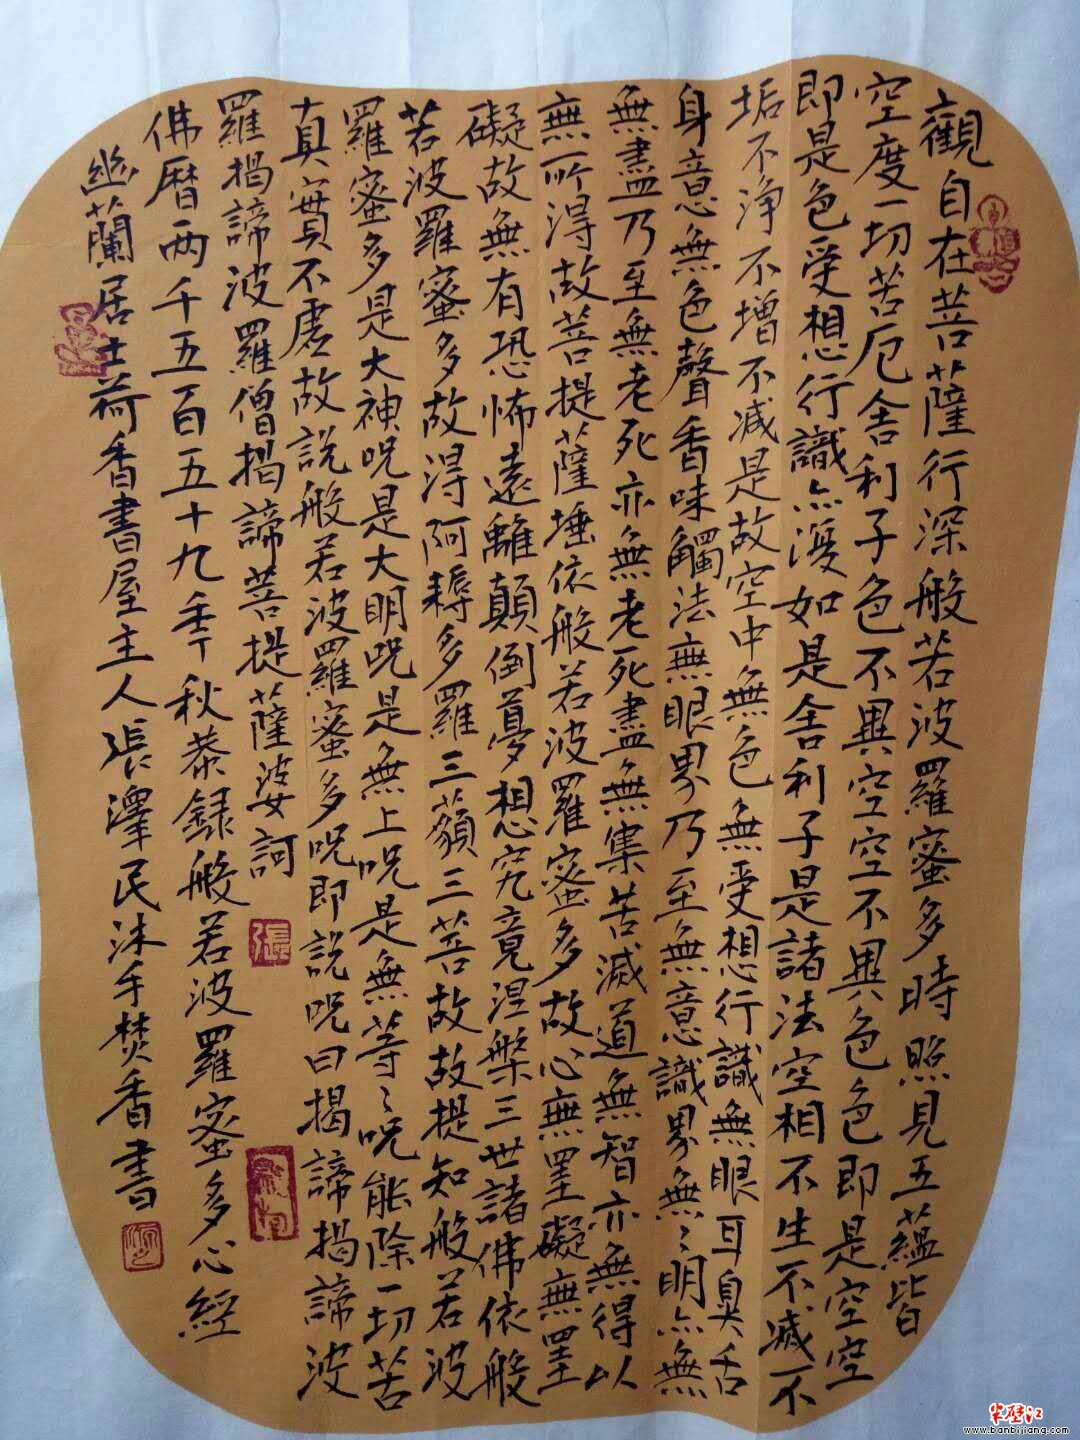 觀自在菩薩行深般若波羅蜜多時照見五蘊皆
空度一切苦厄舍利子色不異空空不異色色即是空空
即是色受想行識亦復如是舍利子是諸法空相不生不滅不
垢不淨不增不減是故空中無色無受想行識無眼耳鼻舌
身意無色聲香味觸法無眼界乃至無意識界無〻明亦無
無盡乃至無老死亦無老死盡無集苦滅道無智亦無得以
無所得故菩提薩埵依般若波羅蜜多故心無罣礙無罣
礙故無有恐怖遠離顛倒夢想究竟涅槃三世諸佛依般
若波羅蜜多故得阿耨多羅三藐三菩故故提知般若波
羅蜜多是大神呪是大明呪是無上呪是無等〻呪能除一切苦
真實不虛故說般若波羅蜜多呪即說呪曰揭諦揭諦波
羅揭諦波羅僧揭諦菩提薩婆訶
張
佛曆兩千五百五十九秊秋恭錄般若波羅蜜多心經
幽蘭居士荷香書屋主人張澤民沐手焚香書
半壁江
www.banbijiang.com